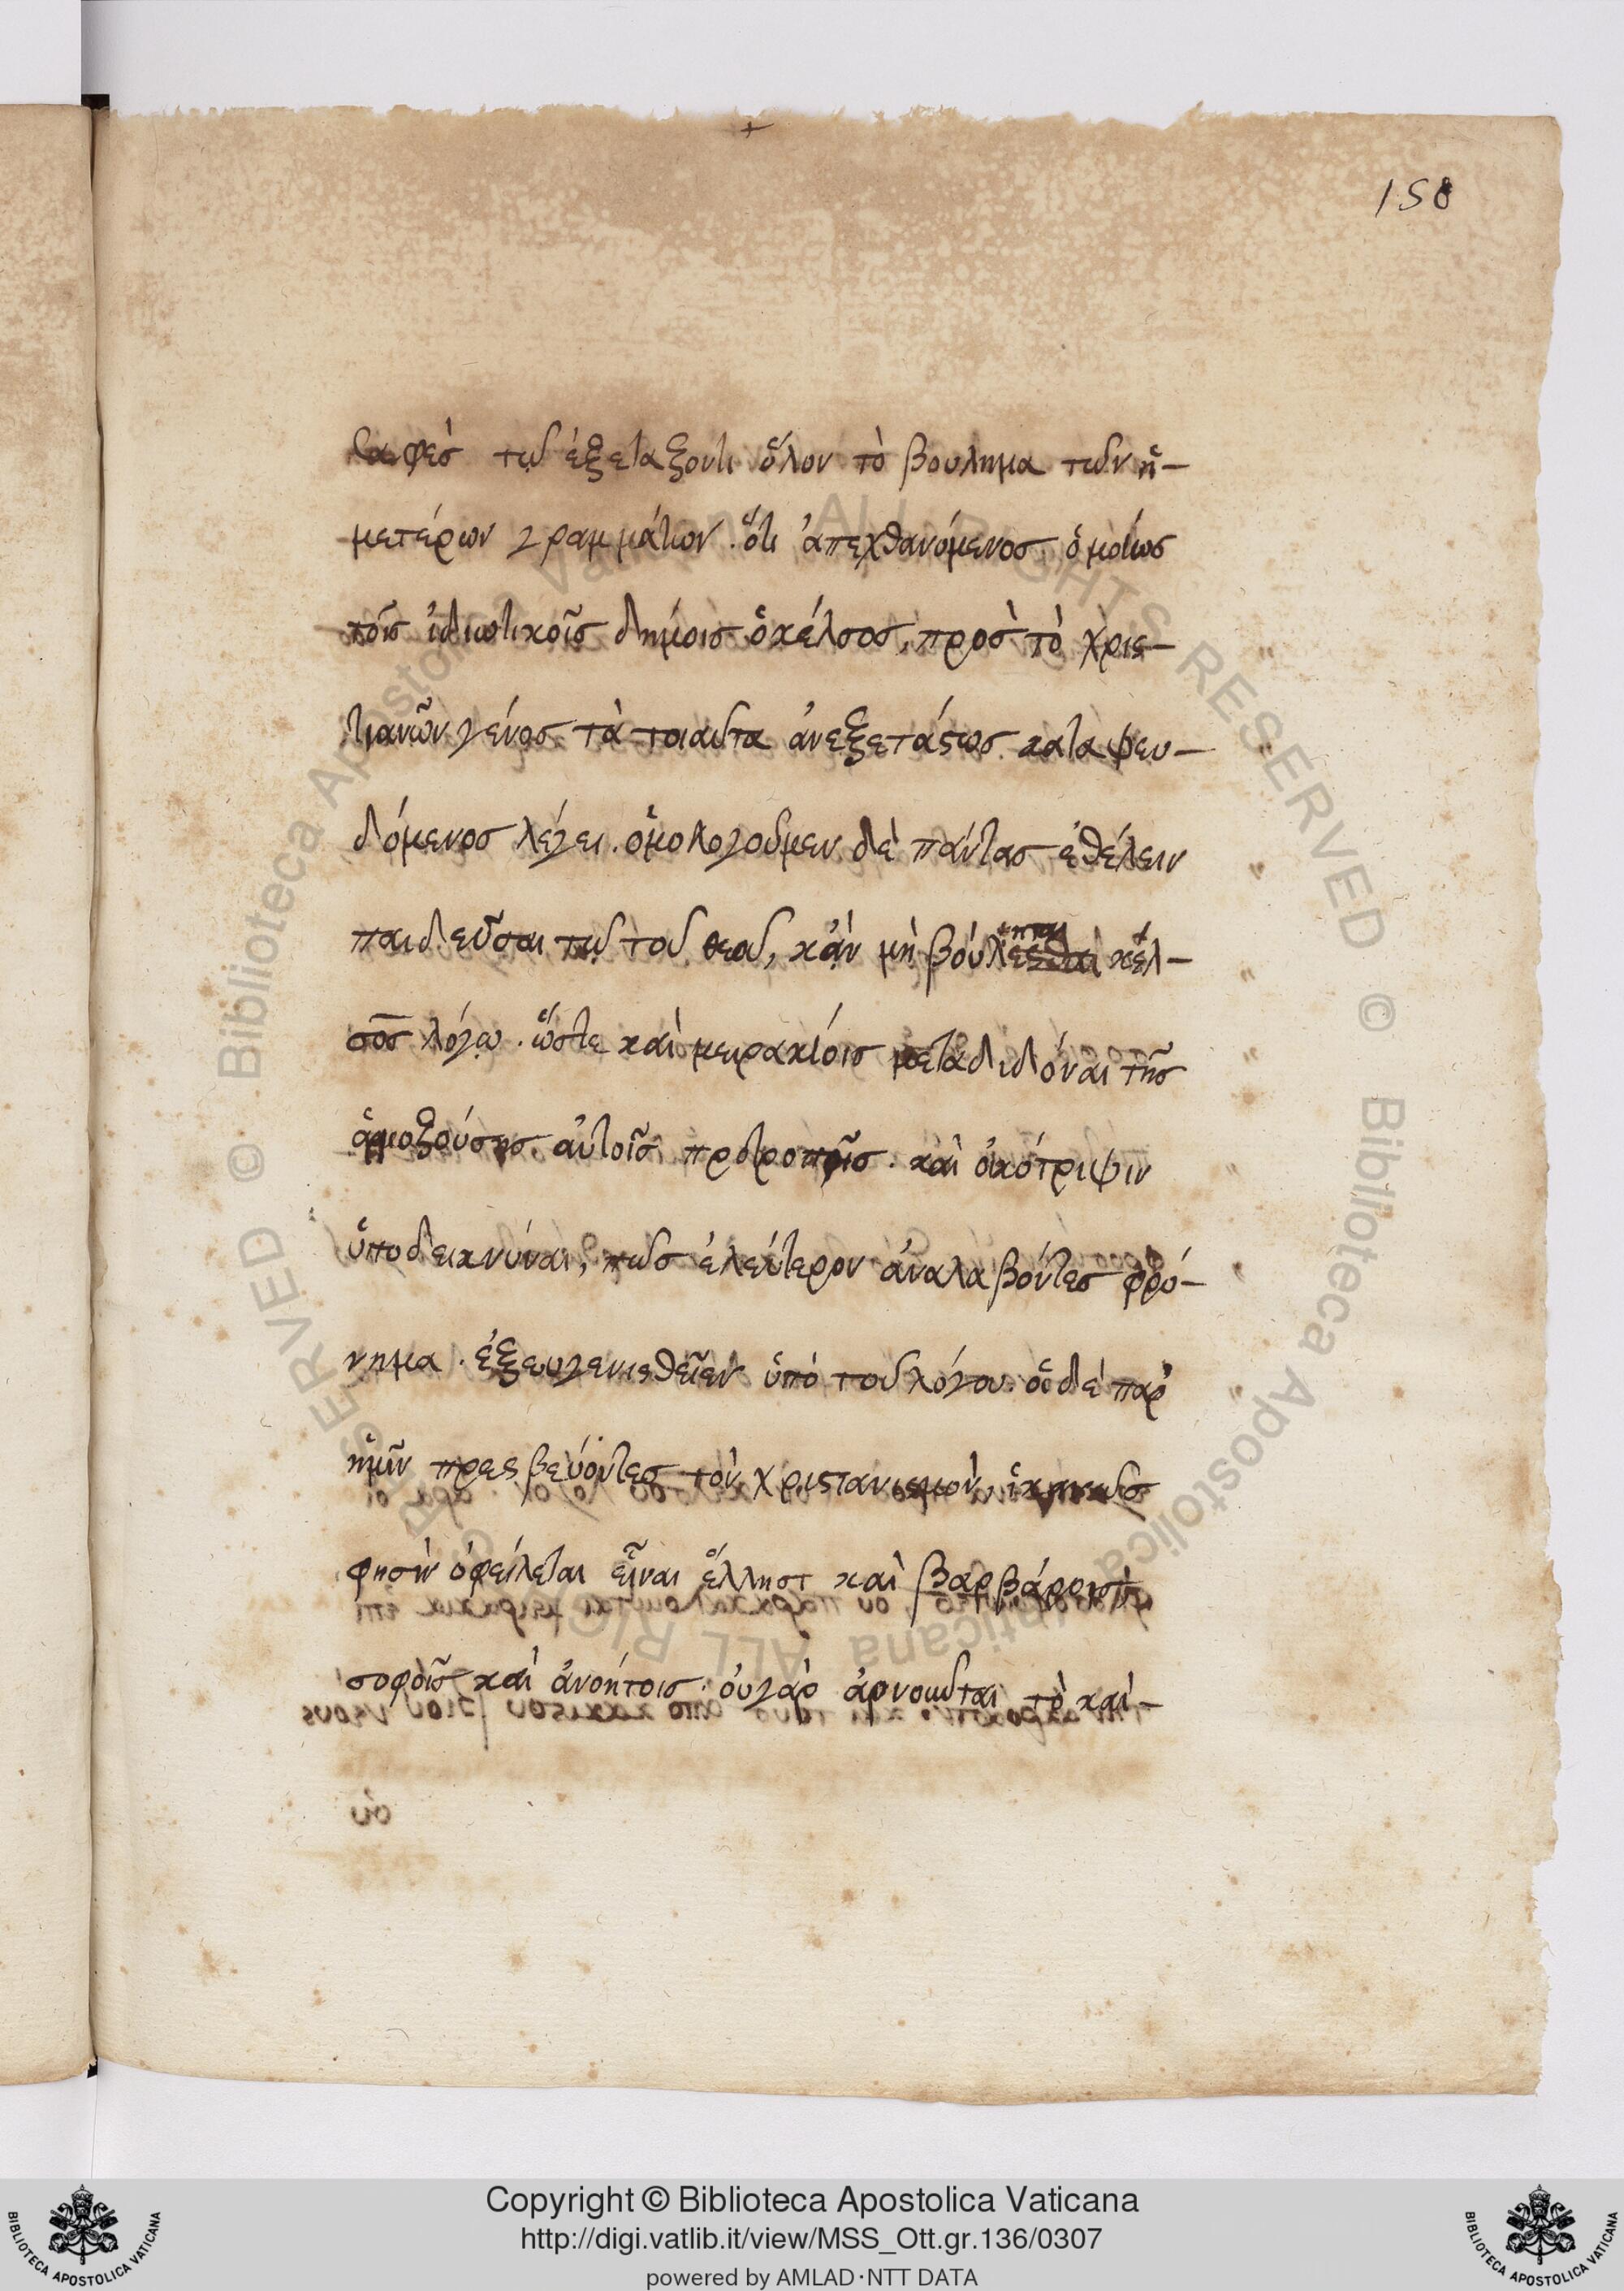 158
σαφὲσ τῷ ἐξετάζοντι ὅλον τὸ βουλημα τῶν ἡ-
μετέρων γραμμάτων. ὅτι ἀπεχθανόμενοσ ὁμοίωσ
τοῖσ ἰδιωτικοῖσ δημοισ ὁ κέλσοσ, προσ τὸ χρισ-
τιανῶν γένοσ τὰ τοιαῦτα ἀνεξετάστωσ καταψευ-
δόμενοσ λέγει. ὁμολογοῦμεν δὲ πάντασ ἐθέλειν
παιδεῦσαι τῷ τοῦ θεοῦ, κἀν μὴ βούληται κέλ-
σοσ λόγῳ. ὥστε καὶ μειρακίοισ μεταδιδόναι τῆσ
ἁρμοζούσησ αὐτοῖσ προτροπῆσ. καὶ οἰκότριψιν
ὑποδεικνύναι, πῶσ ἐλεύτερον ἀναλαβόντεσ φρό-
νημα. ἐξευγενισθεῖεν ὑπὸ τοῦ λόγου. οἱ δὲ παρ'
ἡμῖν πρεσβεύοντεσ τὸν χριστανισμὸν, ἱκανῶσ
φησὶν ὀφείλεται εἶναι ἕλλησι καὶ βαρβάροισ
σοφοῖσ καὶ ἀνοήτοισ. οὐ γὰρ ἀρνοῦνται τὸ καὶ-
Copyright © Biblioteca Apostolica Vaticana
http://digi.vatlib.it/view/MSS_Ott.gr.136/0307
powered by AMLAD·NTT DATA
BIBLIOTECA APOSTOLICA VATICANA
BIBLIOTECA APOSTOLICA VATICANA